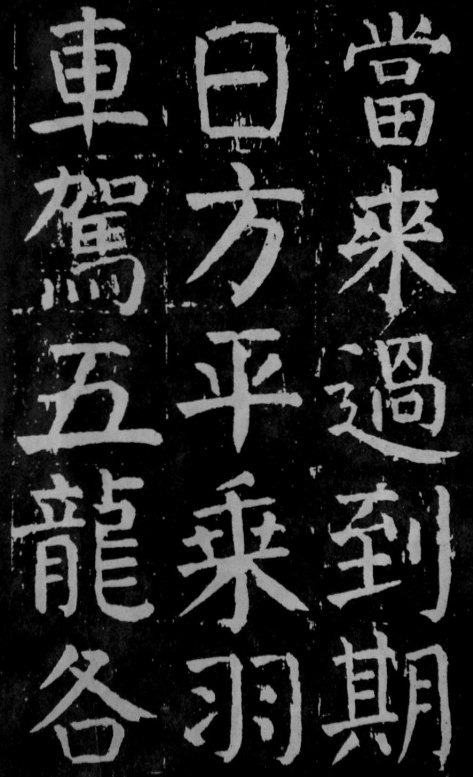 當來過到期
日方平乗羽
車駕五龍各